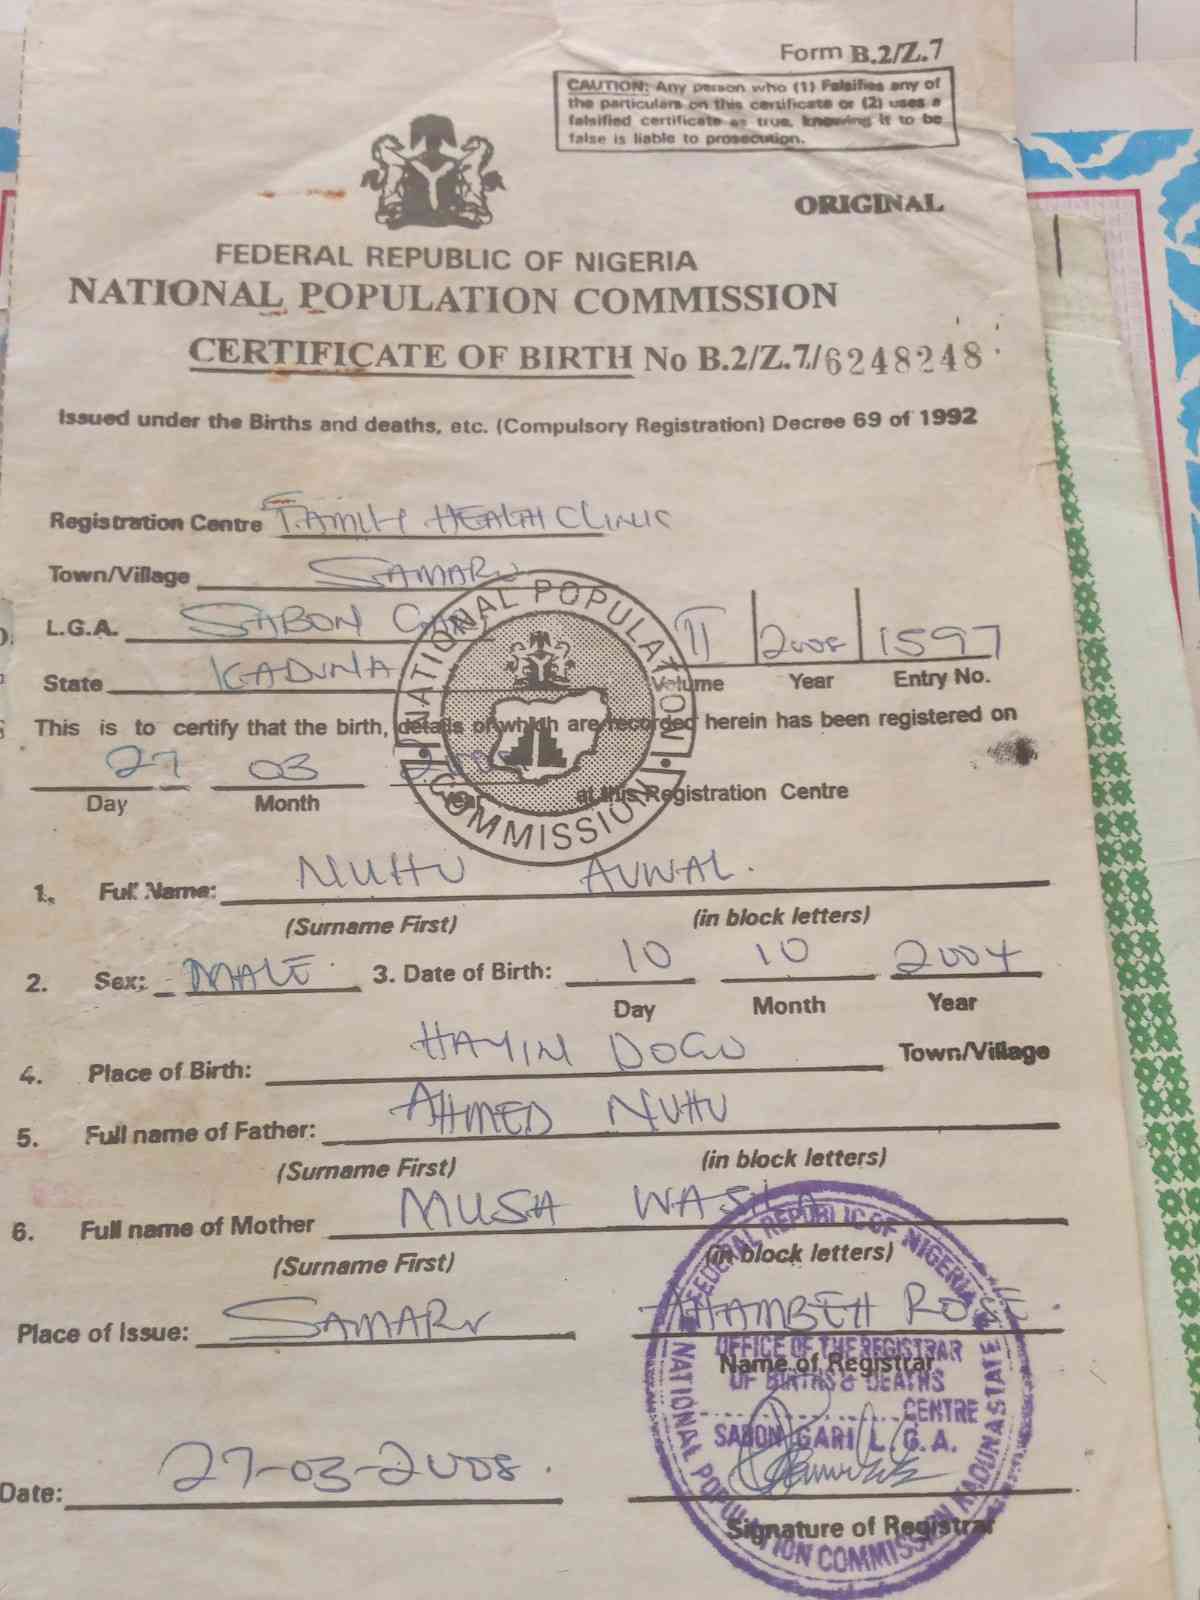 Form B.2/Z.7
CAUTION: Any person who (1) Falsifies any of
the particulars on this certificate or (2) uses a
falsified certificate as true, knowing it to be
false is liable to prosecution.
ORIGINAL
FEDERAL REPUBLIC OF NIGERIA
NATIONAL POPULATION COMMISSION
CERTIFICATE OF BIRTH No B.2/Z.7/6248248
Issued under the Births and deaths, etc. (Compulsory Registration) Decree 69 of 1992
Registration Centre FAMILY HEALTH CLINIC
Town/Village SAMARU
L.G.A. SABON GARI
State KADUNA
II 2008 1597
Volume Year Entry No.
NATIONAL POPULATION COMMISSION
This is to certify that the birth, details of which are recorded herein has been registered on
27 03 2008
Day Month Year at this Registration Centre
1. Full Name: NUHU AUWAL.
(Surname First) (in block letters)
2. Sex: MALE 3. Date of Birth: 10 10 2004
Day Month Year
4. Place of Birth: HAYIN DOGO Town/Village
5. Full name of Father: AHMED NUHU
(Surname First) (in block letters)
6. Full name of Mother MUSA WASILA
(Surname First) (in block letters)
Place of Issue: SAMARU
ROSE.
Name of Registrar
FEDERAL REPUBLIC OF NIGERIA
OFFICE OF THE REGISTRAR
OF BIRTHS & DEATHS
CENTRE
SABON GARI L.G.A.
NATIONAL POPULATION COMMISSION KADUNA STATE
Date: 27-03-2008.
Signature of Registrar